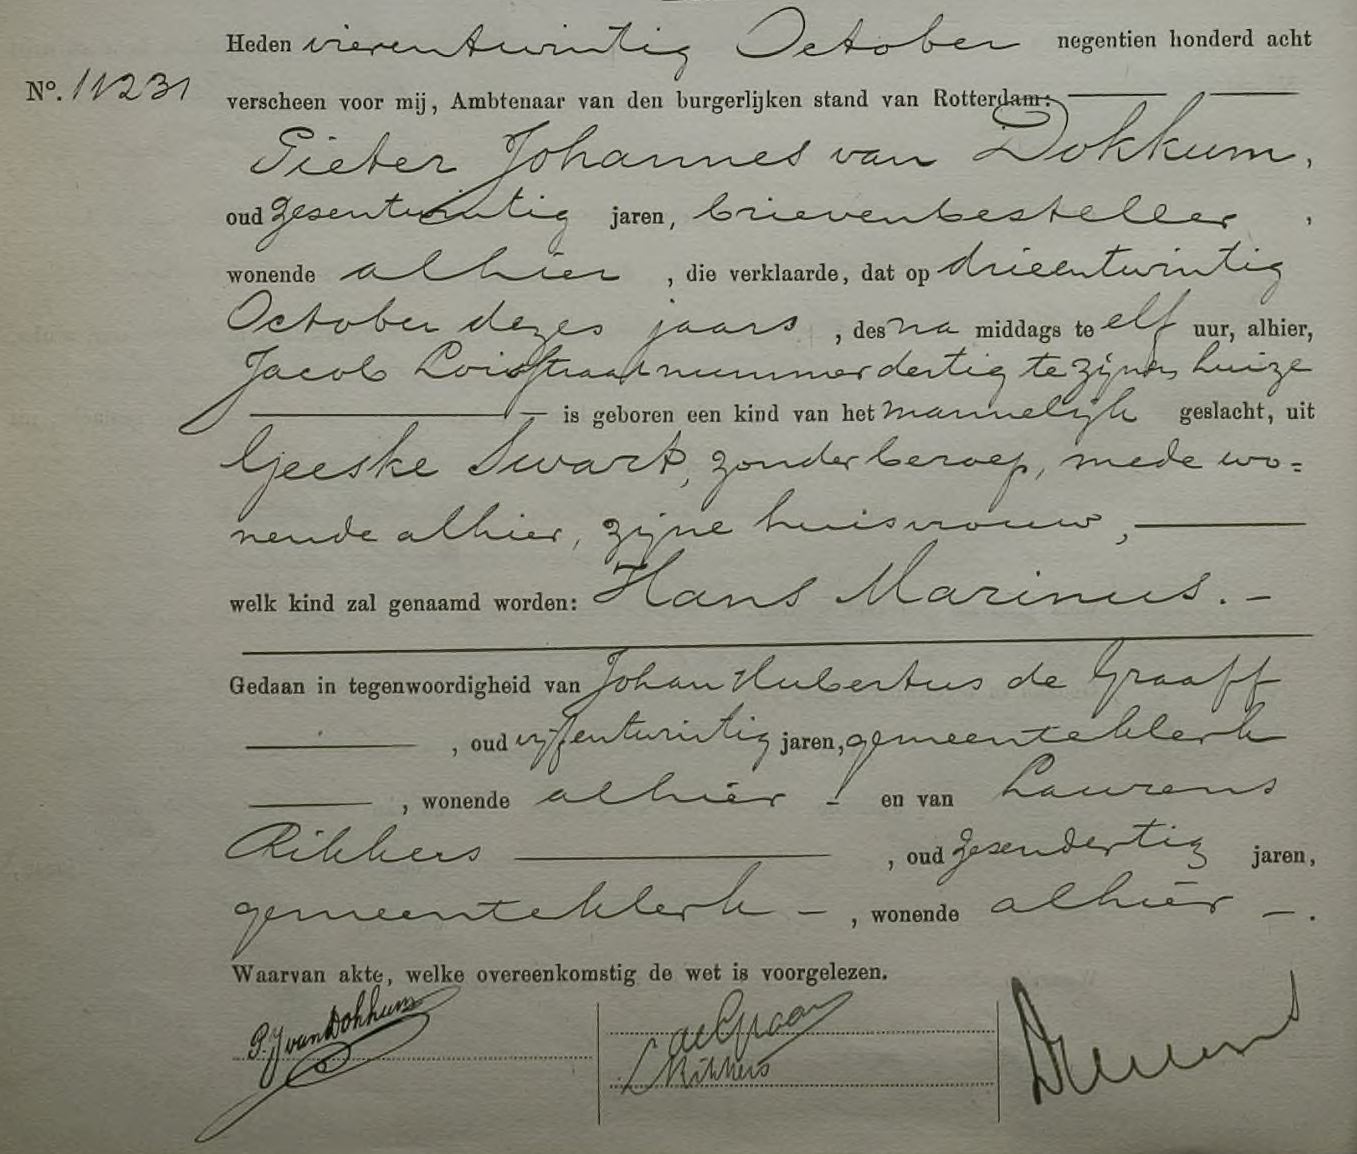 Heden vierentwintig October negentien honderd acht
No. 11231
verscheen voor mij, Ambtenaar van den burgerlijken stand van Rotterdam:
Pieter Johannes van Dokkum,
oud zesentwintig jaren, brievenbesteller,
wonende alhier, die verklaarde, dat op drieentwintig
October dezes jaars, des na middags te elf uur, alhier,
Jacob Loisstraat nummer dertig te zijnen huize
is geboren een kind van het mannelijk geslacht, uit
Geeske Swart, zonder beroep, mede wo=
nende alhier, zijne huisvrouw,
welk kind zal genaamd worden: Hans Marinus. –
Gedaan in tegenwoordigheid van Johan Hubertus de Graaff
, oud vijfentwintig jaren, gemeenteklerk
, wonende alhier – en van Laurens
Rikkers , oud zesendertig jaren,
gemeenteklerk – , wonende alhier – .
Waarvan akte, welke overeenkomstig de wet is voorgelezen.
P.J van Dokkum
de Graaff
L Rikkers